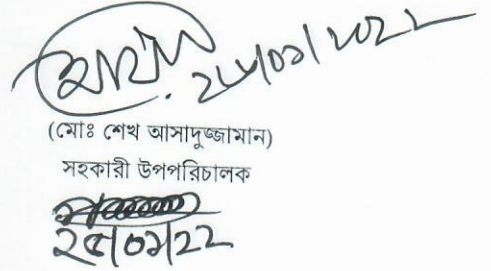 ২৫/০১/২০২২
(মোঃ শেখ আসাদুজ্জামান)
সহকারী উপপরিচালক
২৫/০১/২২